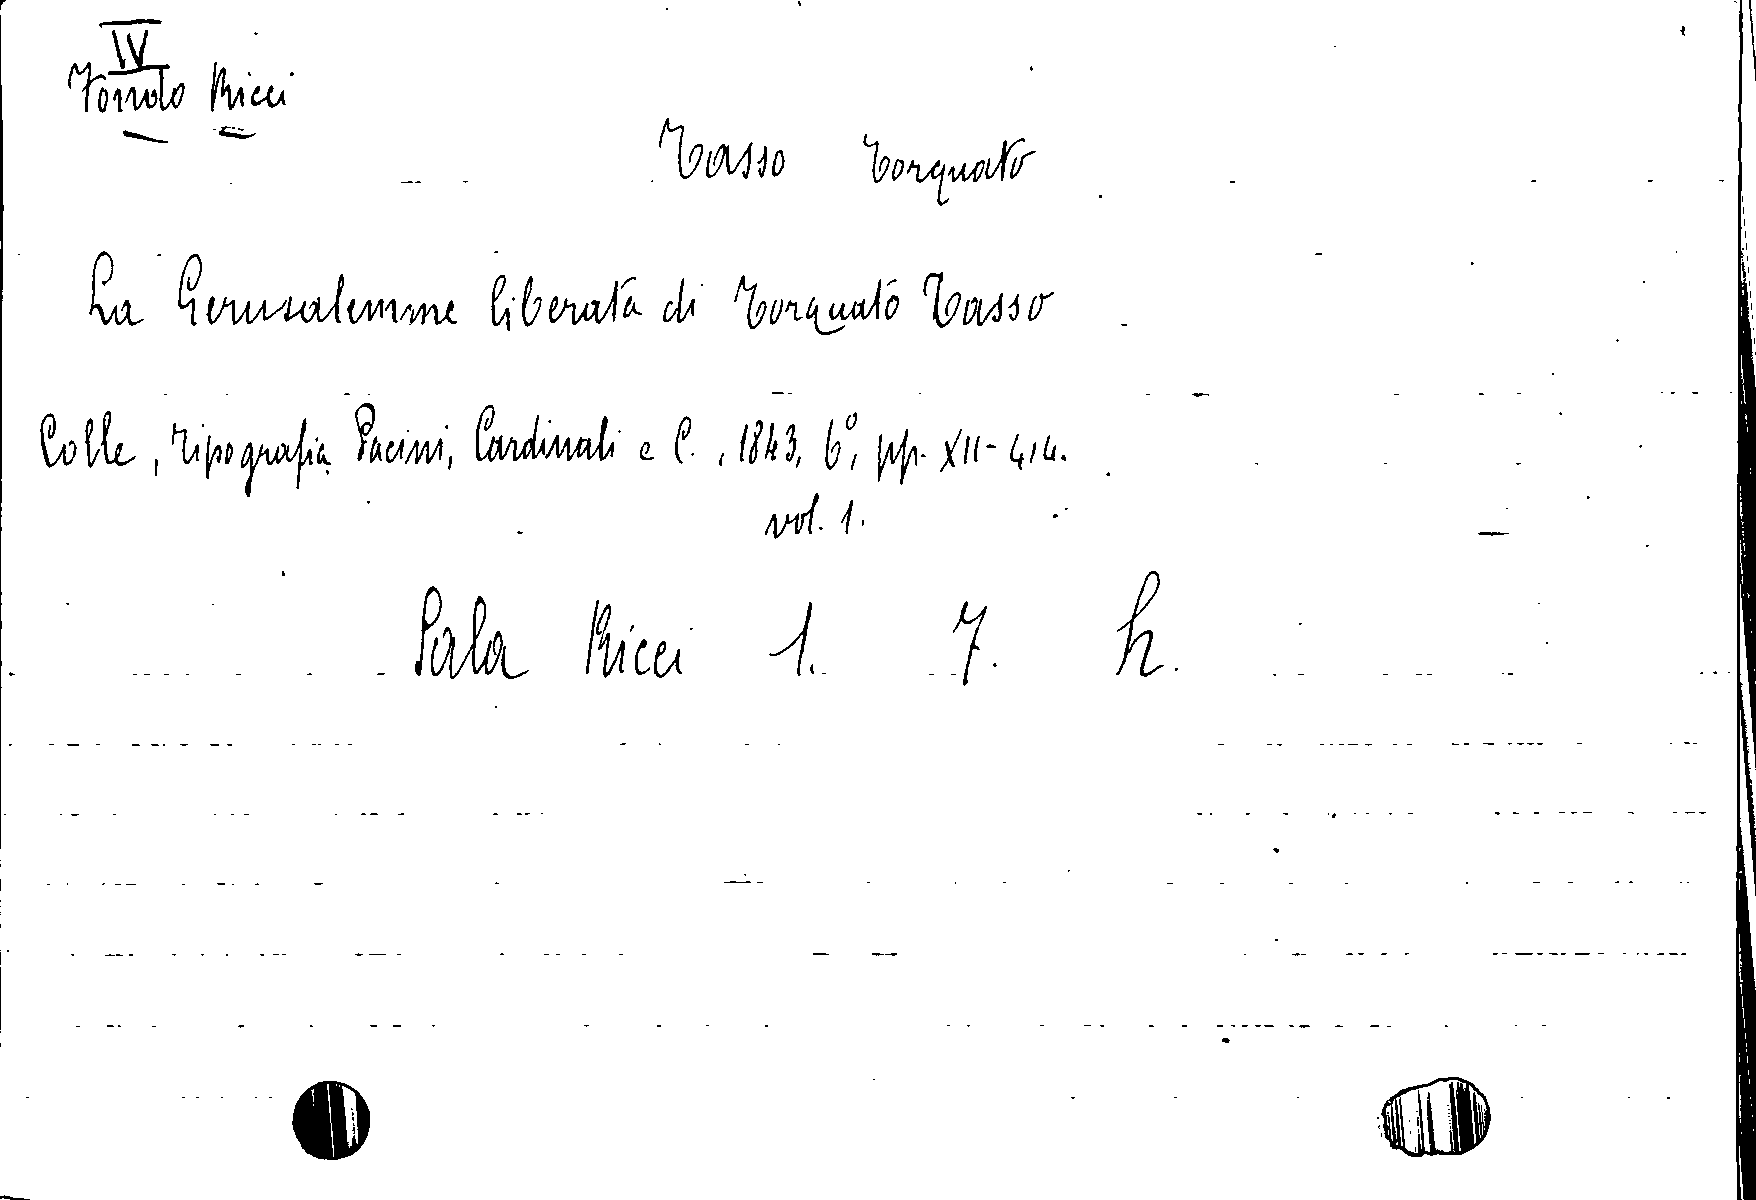 IV
Fondo Ricci
Tasso Torquato
La Gerusalemme liberata di Torquato Tasso
Colle, Tipografia Pacini, Cardinali e C., 1843, 6°, pp. XII-414.
vol. 1.
Sala Ricci 1. 7. h.